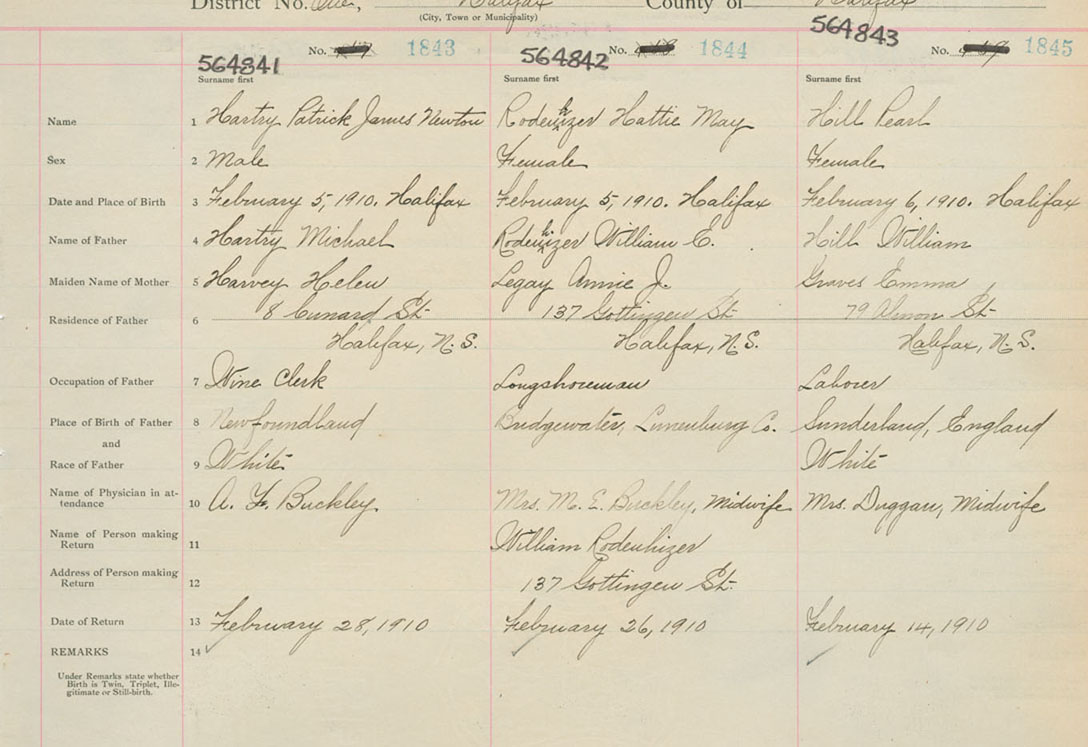 District No. One, Halifax County of Halifax
(City, Town or Municipality)
564841 564842 564843
No. 1843 No. 1844 No. 1845
Surname first Surname first Surname first
Name 1 Hartry Patrick James Newton Rodenhizer Hattie May Hill Pearl
Sex 2 Male Female Female
Date and Place of Birth 3 February 5, 1910. Halifax February 5, 1910. Halifax February 6, 1910. Halifax
Name of Father 4 Hartry Michael Rodenhizer William E. Hill William
Maiden Name of Mother 5 Harvey Helen Legay Annie J. Graves Emma
8 Cunard St. 137 Gottingen St. 79 Almon St.
Residence of Father 6
Halifax, N.S. Halifax, N.S. Halifax, N.S.
Occupation of Father 7 Wine Clerk Longshoreman Laborer
Place of Birth of Father 8 Newfoundland Bridgewater, Lunenburg Co. Sunderland, England
and
Race of Father 9 White White
Name of Physician in at-
tendance 10 A. F. Buckley Mrs. M. E. Buckley, Midwife Mrs. Duggan, Midwife
Name of Person making
Return 11 William Rodenhizer
Address of Person making
Return 12 137 Gottingen St.
Date of Return 13 February 28, 1910 February 26, 1910 February 14, 1910
REMARKS 14
Under Remarks state whether
Birth is Twin, Triplet, Ille-
gitimate or Still-birth.